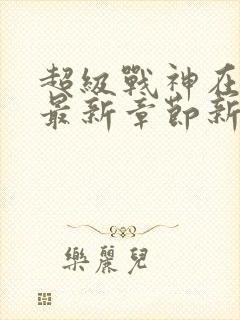 超級戰神在
最新章節新
樂麗兒